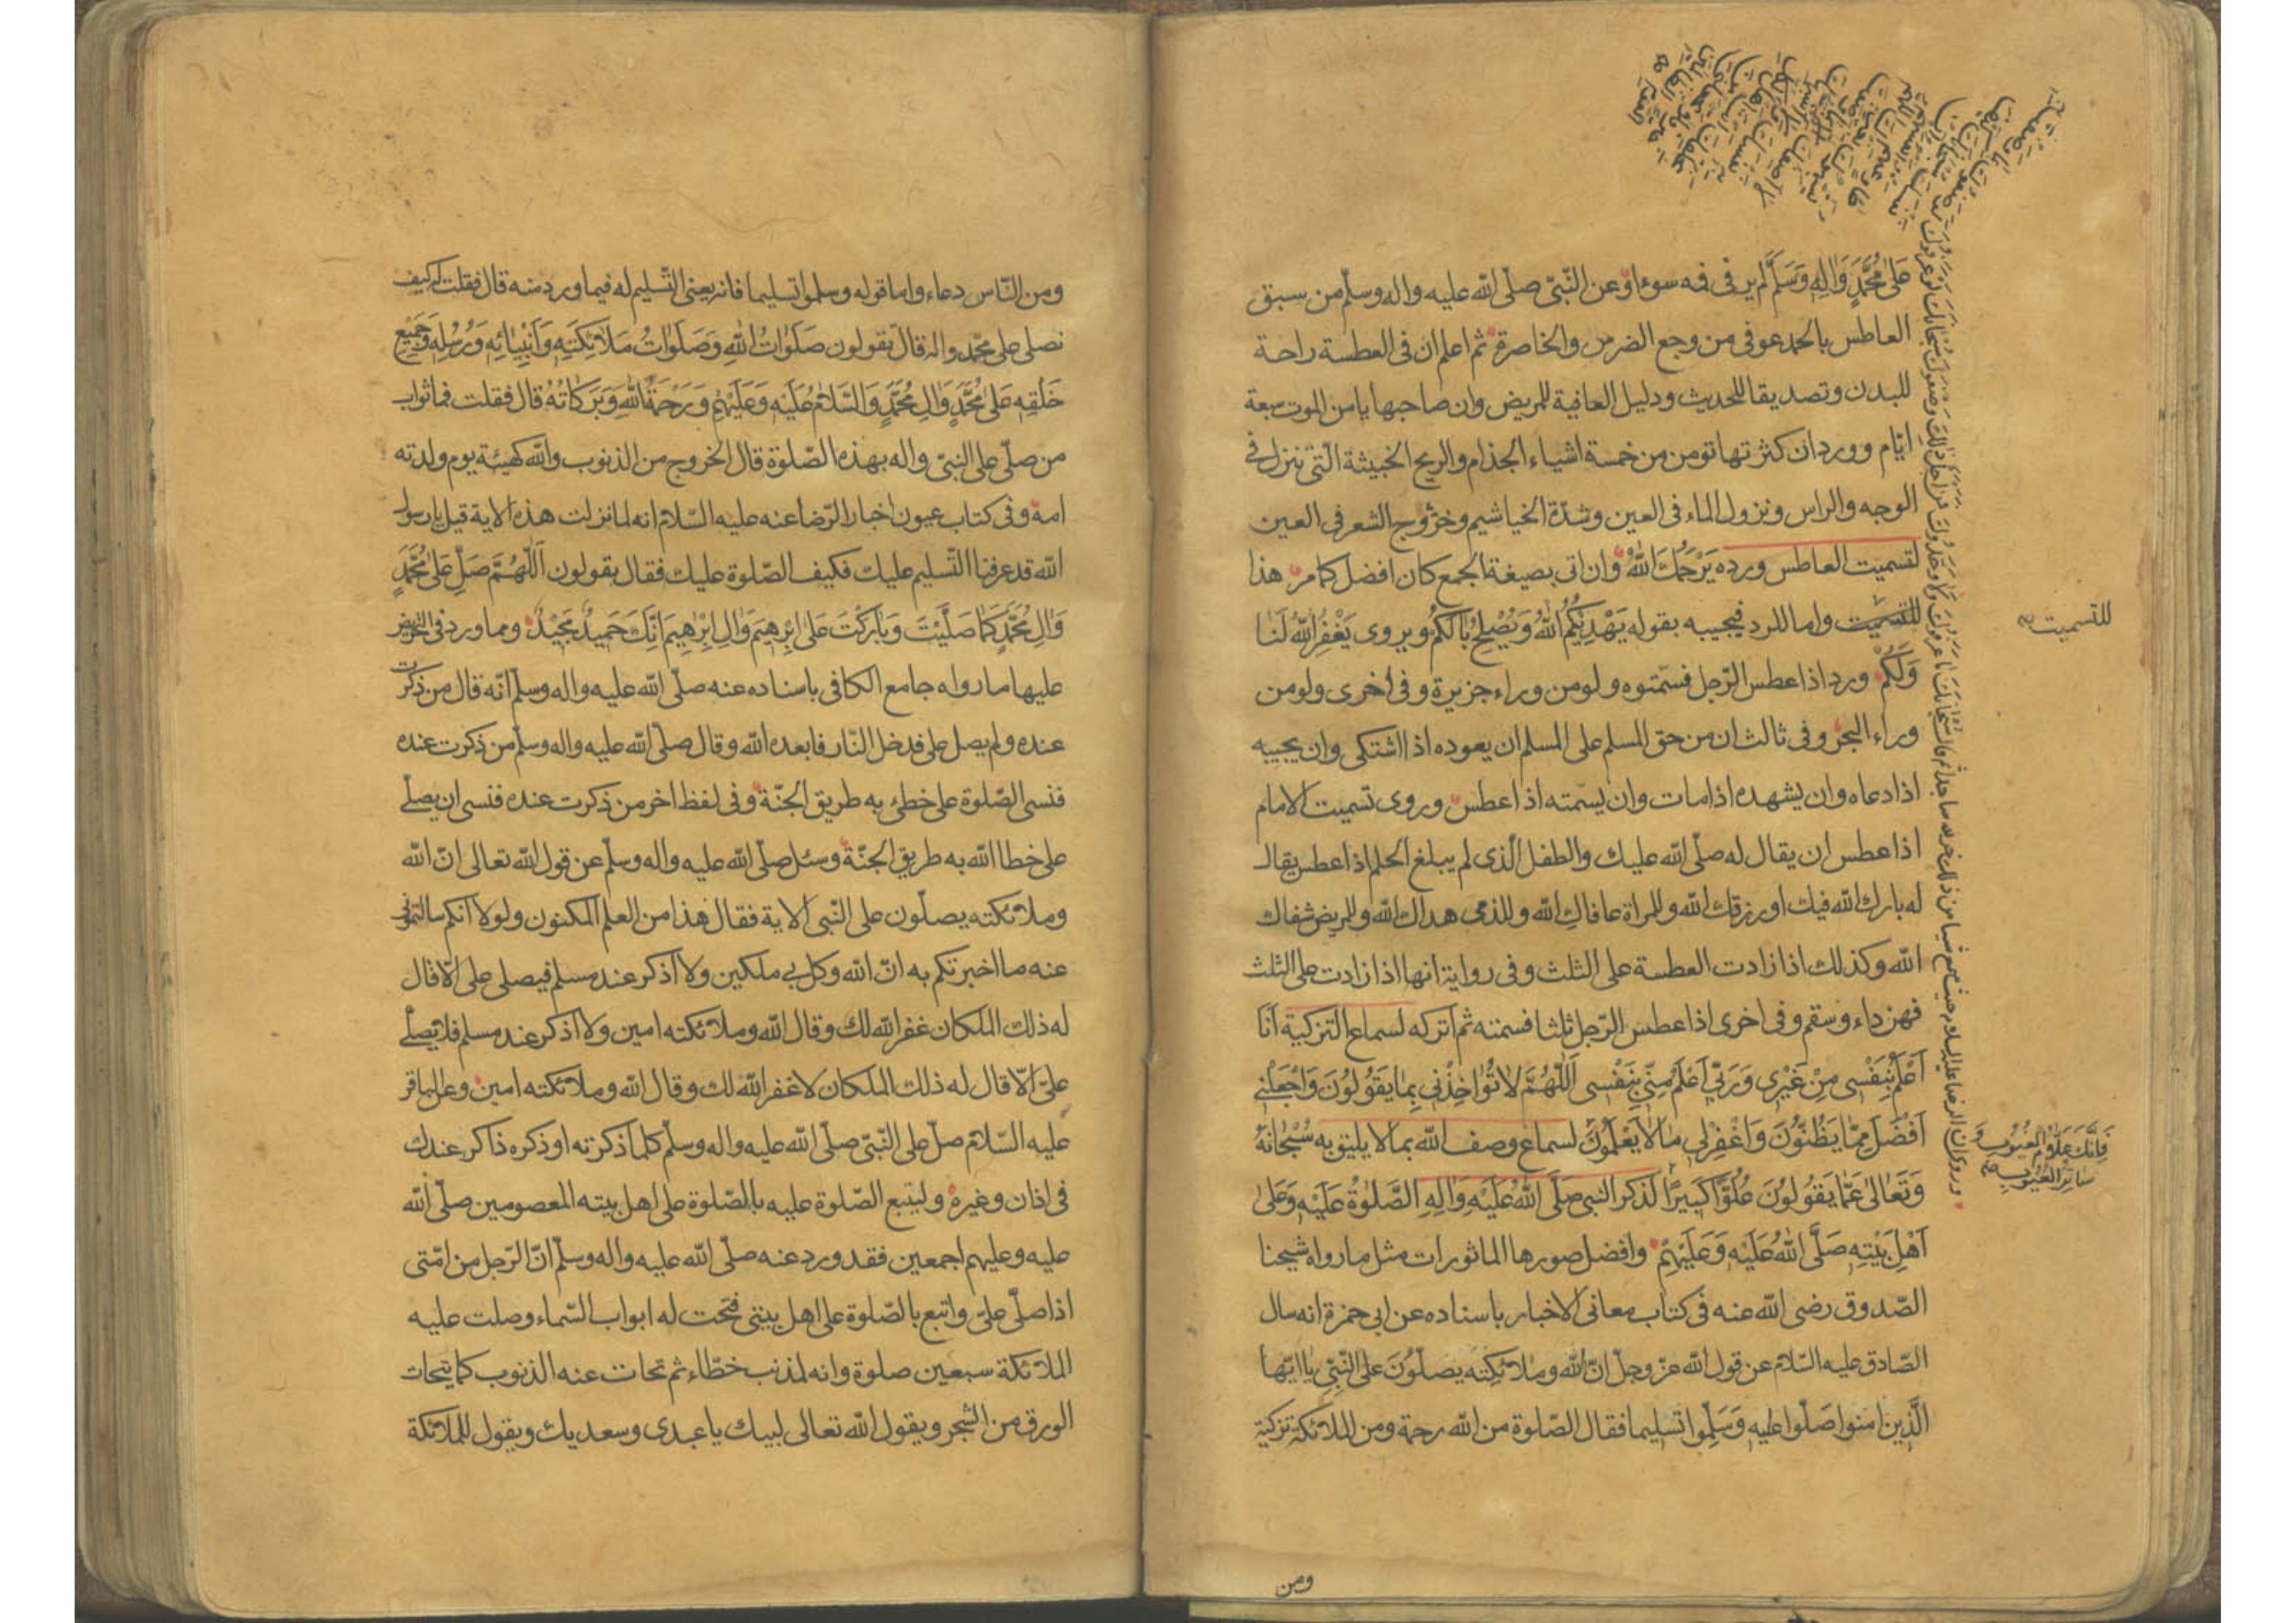 على مُحَمَّدٍ وَالِهِ وَسَلَّمَ لم ير في فمه سوءا وعن النّبيّ صلّى الله عليه واله وسلّم من سبق
العاطس بالحمد عوفى من وجع الضرس والخاصرة ثم اعلم ان فى العطسة راحة
للبدن وتصديقا للحديث ودليل العافية للمريض وان صاحبها يامن الموت سبعة
ايّام وورد ان كثرتها تومن من خمسة اشياء الجذام والريح الخبيثة الّتى تنزل فى
الوجه والراس ونزول الماء فى العين وشدّة الخياشيم وخروج الشعر فى العين
لتسميت العاطس ورده يَرْحَمُكَ اللهُ وان اتى بصيغة الجمع كان افضل كما مر هذا
للتسميت واما للرد فيجيبه بقوله يَهْدِيكُمُ اللهُ وَيُصْلِحُ بَالَكُمْ ويروى يَغْفِرُ اللهُ لَنَا
وَلَكُمْ ورد اذا عطس الرّجل فسمّتوه ولو من وراء جزيرة وفى اخرى ولو من
وراء البحر وفى ثالث ان من حق المسلم على المسلم ان يعوده اذا اشتكى وان يجيبه
اذا دعاه وان يشهده اذا مات وان يسمّته اذا عطس وروى تسميت الامام
اذا عطس ان يقال له صلّى الله عليك والطفل الّذى لم يبلغ الحلم اذا عطس يقال
له بارك الله فيك او رزقك الله وللمراة عافاكِ الله وللذمى هداك الله وللمريض شفاك
الله وكذلك اذا زادت العطسة على الثلث وفى رواية انها اذا زادت على الثلث
فهن داء وسقم وفى اخرى اذا عطس الرّجل ثلثا فسمته ثم اتركه لسماع التزكية اَنَا
اَعْلَمُ بِنَفْسى مِنْ غَيْرى وَرَبّى اَعْلَمُ مِنّى بِنَفْسى اَللّٰهُمَّ لا تُؤاخِذْنى بِمَا يَقُولُونَ وَاجْعَلْنى
اَفْضَلَ مِمّا يَظُنُّونَ وَاغْفِرْلى مَا لا يَعْلَمُونَ لسماع وصف الله بما لا يليق به سُبْحَانَهُ
وَتَعَالىٰ عَمَّا يَقُولُونَ عُلُوًّا كَبيرًا لذكر النبى صَلَّى اللهُ عَلَيْهِ وَالِهِ الصَّلوٰةُ عَلَيْهِ وَعَلىٰ
اَهْلِ بَيْتِهِ صَلَّى اللهُ عَلَيْهِ وَعَلَيْهِمْ وافضل صورها الماثورات مثل ما رواه شيخنا
الصّدوق رضى الله عنه فى كتاب معانى الاخبار باسناده عن ابى حمزة انه سال
الصّادق عليه السّلام عن قول الله عزّ وجلّ انّ الله وملائكته يصلّونَ على النّبيّ يا ايّها
الّذين امنوا صلّوا عليه وَسَلِّموا تسليما فقال الصّلوة من الله رحمة ومن الملائكة تزكية
للتسميت صح
فَاِنَّكَ عَلَّامُ الْغُيُوبِ وَ
سَاتِرُ الْعُيُوبِ صح
ومن
ومن النّاس دعاء واما قوله وسلموا تسليما فانه يعنى التّسليم له فيما ورد منه قال فقلت له كيف
نصلى على محمّد واله قال تقولون صَلَوٰاتُ اللهِ وَصَلَوٰاتُ مَلائِكَتِهِ وَاَنْبِيٰائِهِ وَرُسُلِهِ وَجَمِيْعِ
خَلْقِهِ عَلىٰ مُحَمَّدٍ وَالِ مُحَمَّدٍ وَالسَّلامُ عَلَيْهِ وَعَلَيْهِمْ وَرَحْمَةُ اللهِ وَبَرَكَاتُهُ قال فقلت فما ثواب
من صلّى على النبيّ واله بهذه الصّلوة قال الخروج من الذنوب والله كهيئة يوم ولدته
امه وفى كتاب عيون اخبار الرّضا عنه عليه السّلام انه لما نزلت هذه الاية قيل يا رسول
الله قد عرفنا التّسليم عليك فكيف الصّلوة عليك فقال تقولون اَللّٰهُمَّ صَلِّ عَلىٰ مُحَمَّدٍ
وَالِ مُحَمَّدٍ كَمَا صَلَّيْتَ وَبَارَكْتَ عَلىٰ اِبْرٰهيمَ وَالِ اِبْرٰهِيمَ اِنَّكَ حَمِيدٌ مَجِيْدٌ ومما ورد فى التحريض
عليها ما رواه جامع الكافى باسناده عنه صلّى الله عليه واله وسلّم انّه قال من ذكرت
عنده ولم يصل على فدخل النّار فابعده الله وقال صلّى الله عليه واله وسلّم من ذكرت عنده
فنسى الصّلوة على خطئ به طريق الجنّة وفى لفظ اخر من ذكرت عنده فنسى ان يصلّى
على خطا الله به طريق الجنّة وسئل صلّى الله عليه واله وسلّم عن قول الله تعالى انّ الله
وملائكته يصلّون على النّبى الاية فقال هذا من العلم المكنون ولولا انّكم سالتمونى
عنه ما اخبرتكم به انّ الله وكل بى ملكين ولا اذكر عند مسلم فيصلى على الّا قال
له ذلك الملكان غفر الله لك وقال الله وملائكته امين ولا اذكر عند مسلم فلا يصلّى
علىّ الّا قال له ذلك الملكان لا غفر الله لك وقال الله وملائكته امين وعن الباقر
عليه السّلام صلّ على النّبيّ صلّى الله عليه واله وسلّم كلما ذكرته او ذكره ذاكر عندك
فى اذان وغيره وليتبع الصّلوة عليه بالصّلوة على اهل بيته المعصومين صلّى الله
عليه وعليهم اجمعين فقد ورد عنه صلّى الله عليه واله وسلّم انّ الرّجل من امّتى
اذا صلّى علىّ واتبع بالصّلوة على اهل بيتى فتحت له ابواب السّماء وصلت عليه
الملائكة سبعين صلوة وانه لمذنب خطّاء ثم تحات عنه الذنوب كما يتحات
الورق من الشجر ويقول الله تعالى لبيك يا عبدى وسعديك ويقول للملائكة